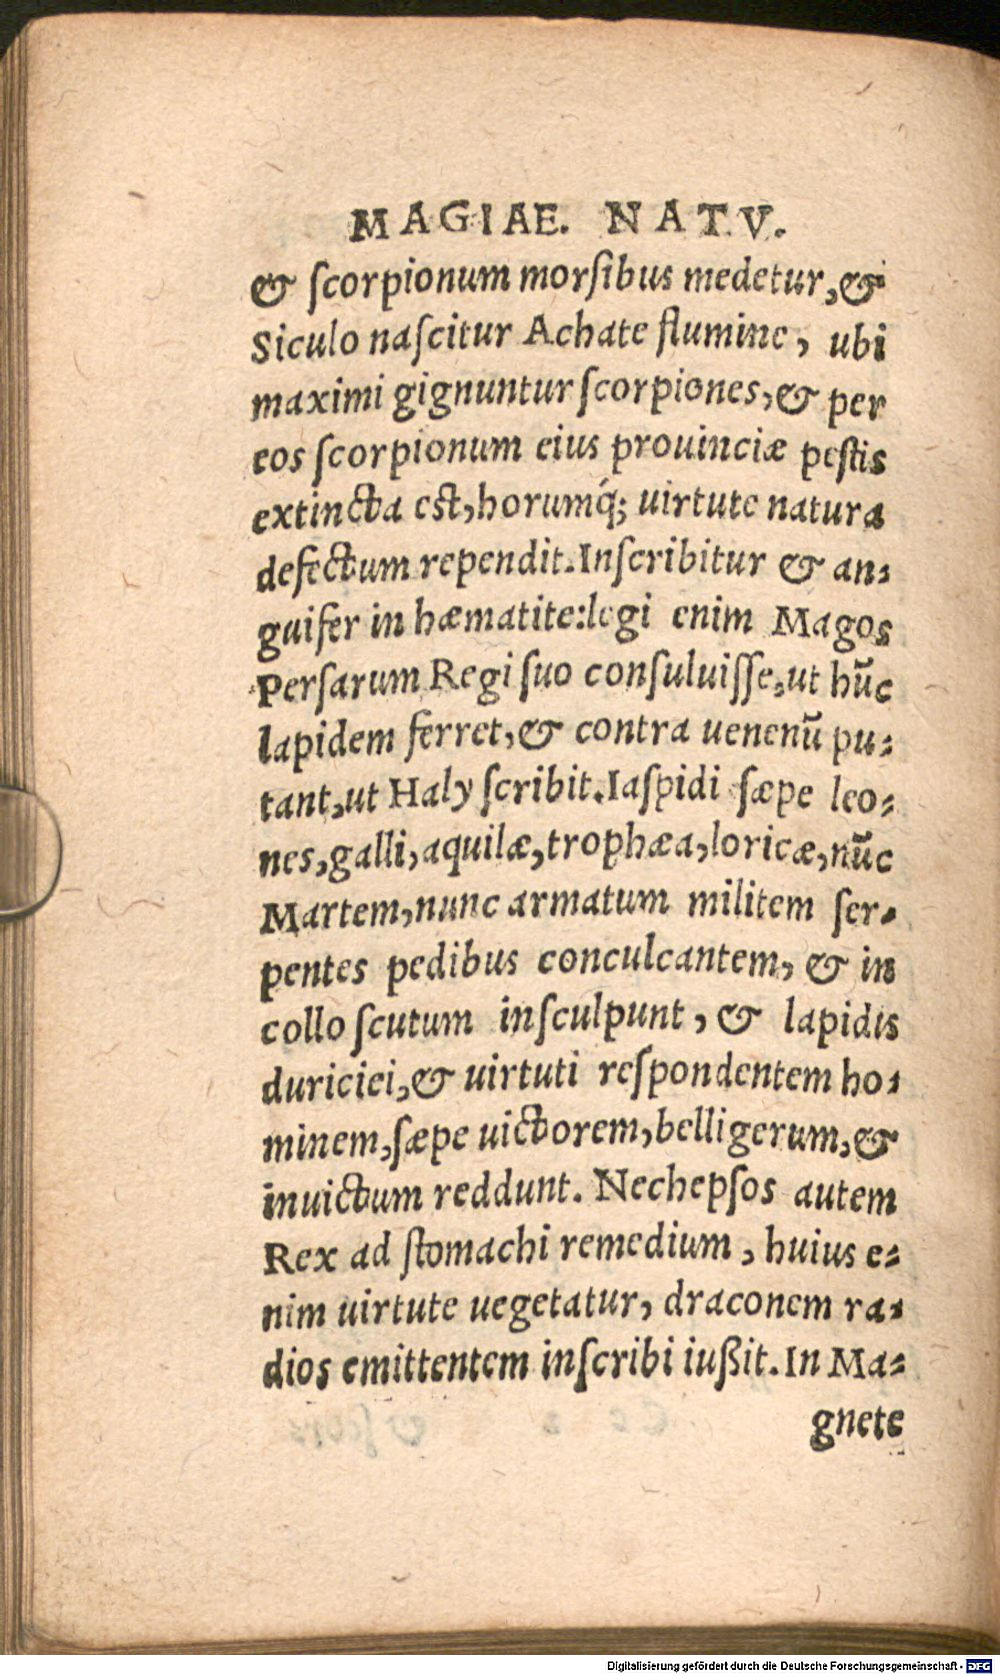 MAGIAE. NATV.
& ſcorpionum morſibus medetur, &
Siculo naſcitur Achate flumine, ubi
maximi gignuntur ſcorpiones, & per
eos ſcorpionum eius prouinciæ peſtis
extincta eſt, horumq́; uirtute natura
defectum rependit. Inſcribitur & an-
guifer in hæmatite: legi enim Magos
Perſarum Regi ſuo conſuluiſſe, ut hūc
lapidem ferret, & contra uenenū pu-
tant, ut Haly ſcribit. Iaſpidi ſæpe leo-
nes, galli, aquilæ, trophæa, loricæ, nūc
Martem, nunc armatum militem ſer-
pentes pedibus conculcantem, & in
collo ſcutum inſculpunt, & lapidis
duriciei, & uirtuti reſpondentem ho-
minem, ſæpe uictorem, belligerum, &
inuictum reddunt. Nechepſos autem
Rex ad ſtomachi remedium, huius e-
nim uirtute uegetatur, draconem ra-
dios emittentem inſcribi iußit. In Ma-
gnete
Digitalisierung gefördert durch die Deutsche Forschungsgemeinschaft - DFG